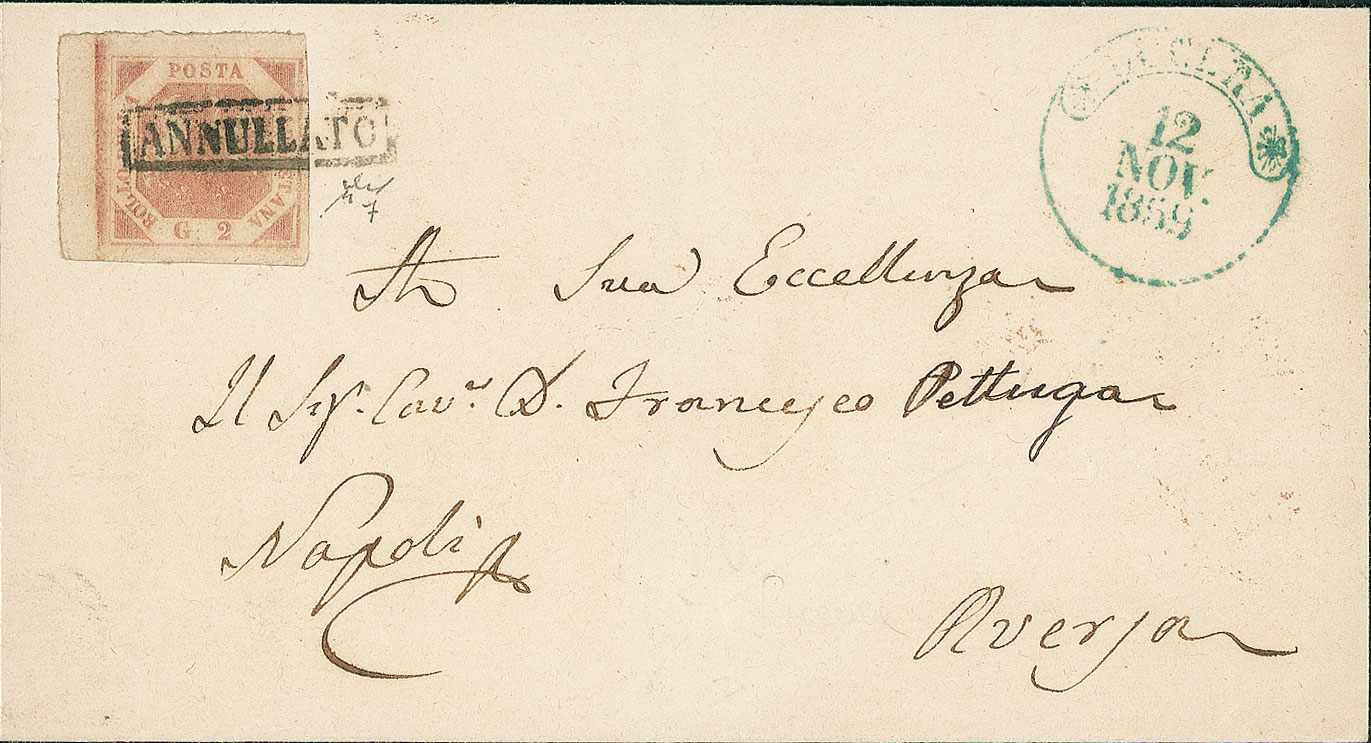 POSTA
BOLLO
G. 2
ANNULLATO
LUCERA
12
NOV.
1859
A Sua Eccellenza
Il Sig. Cav.re D. Francesco Pettuga
Napoli p
Aversa